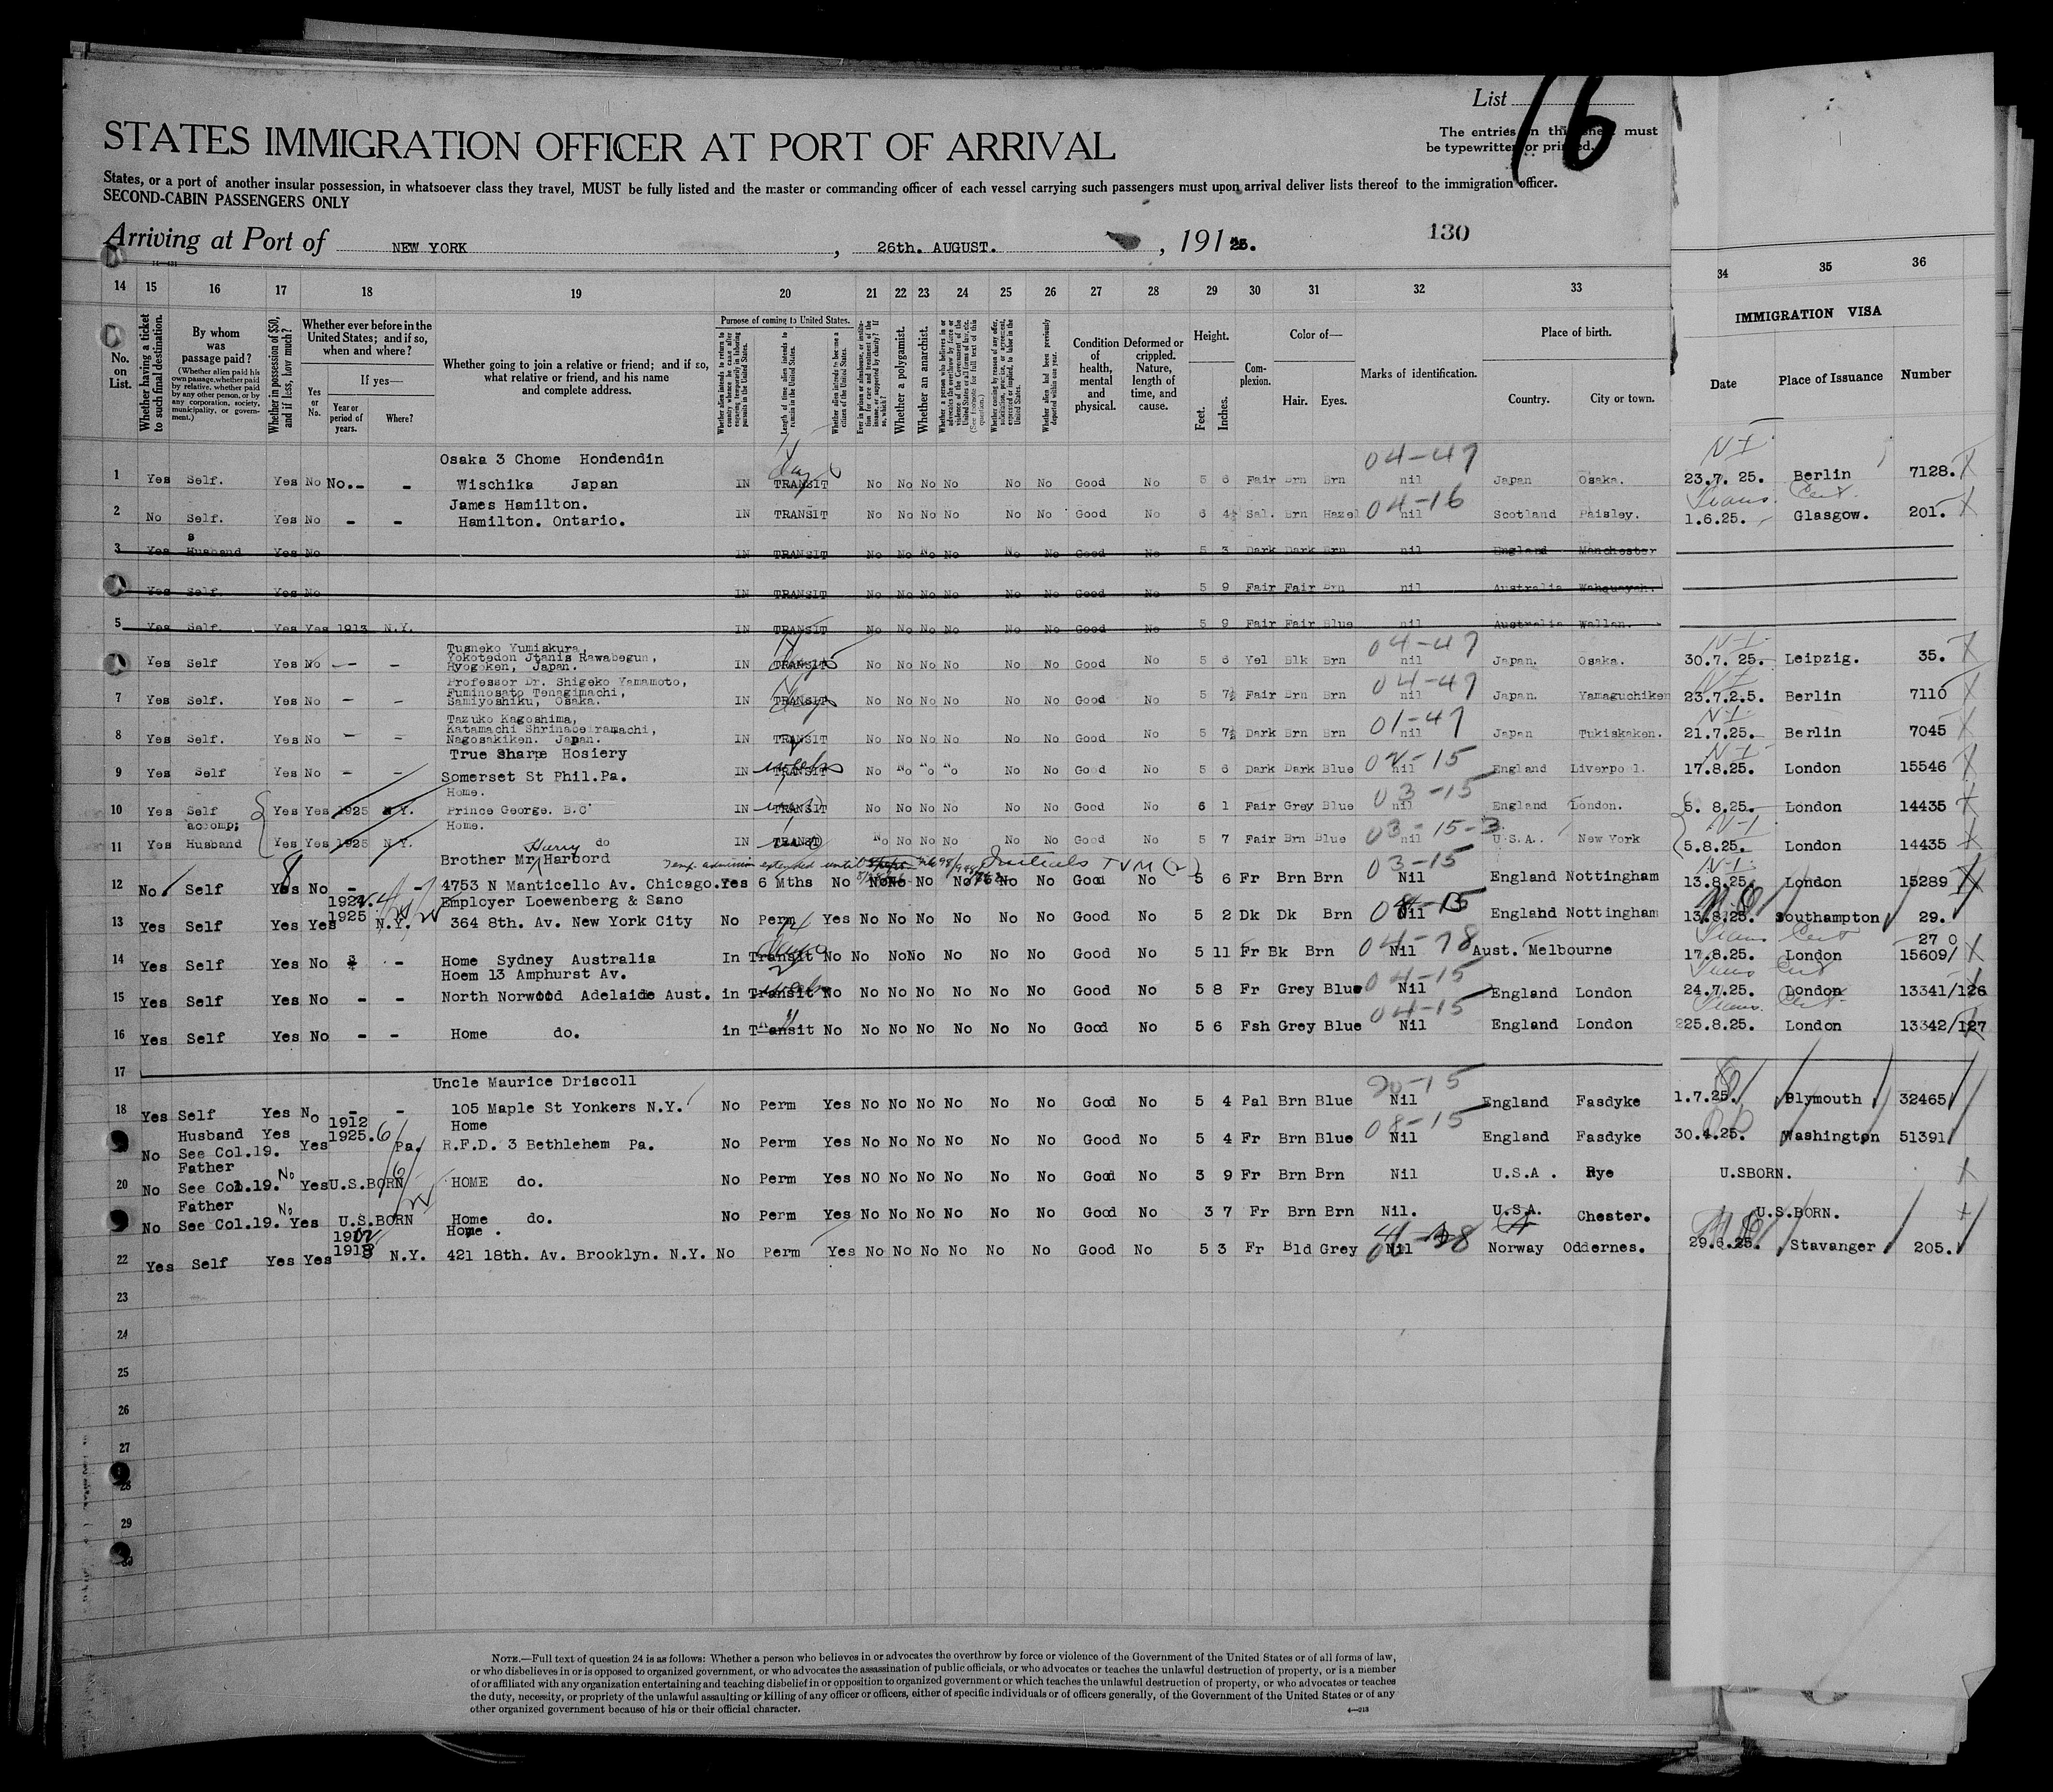 List 16
The entries on this sheet must
be typewritten or printed.
STATES IMMIGRATION OFFICER AT PORT OF ARRIVAL
States, or a port of another insular possession, in whatsoever class they travel, MUST be fully listed and the master or commanding officer of each vessel carrying such passengers must upon arrival deliver lists thereof to the immigration officer.
SECOND-CABIN PASSENGERS ONLY
Arriving at Port of NEW YORK , 26th. AUGUST. , 191 25. 130
14 15 16 17 18 19 20 21 22 23 24 25 26 27 28 29 30 31 32 33 34 35 36
No. on List.
Whether having a ticket to such final destination.
By whom was passage paid?
(Whether alien paid his own passage, whether paid by relative, whether paid by any other person, or by any corporation, society, municipality, or government.)
Whether in possession of $50, and if less, how much?
Whether ever before in the United States; and if so, when and where?
Yes or No.
If yes—
Year or period of years.
Where?
Whether going to join a relative or friend; and if so, what relative or friend, and his name and complete address.
Purpose of coming to United States.
Length of time alien intends to remain in the United States.
Whether alien intends to become a citizen of the United States.
Whether a polygamist.
Whether an anarchist.
Condition of health, mental and physical.
Deformed or crippled. Nature, length of time, and cause.
Height.
Feet. Inches.
Complexion.
Color of—
Hair. Eyes.
Marks of identification.
Place of birth.
Country. City or town.
IMMIGRATION VISA
Date Place of Issuance Number
Osaka 3 Chome Hondendin 04-47 N-I
1 Yes Self. Yes No No.-- - Wischika Japan IN TRANSIT No No No No No No Good 5 6 Fair Brn Brn nil Japan Osaka. 23.7. 25. Berlin 7128.
James Hamilton. 04-16 Trans. Cert.
2 No Self. Yes No - - Hamilton. Ontario. IN TRANSIT No No No No No No Good No 6 4½ Sal. Brn Hazel nil Scotland Paisley. 1.6.25. Glasgow. 201.
3 Yes Husband Yes No IN TRANSIT No No No No No No Good No 5 3 Dark Dark Brn nil England Manchester
Yes Self. Yes No IN TRANSIT No No No No No No Good No 5 9 Fair Fair Brn nil Australia
5 Yes Self. Yes Yes 1913 N.Y. IN TRANSIT No No No No No No Good No 5 9 Fair Fair Blue nil Australia Wallan.
Tusneko Yumiskura, 04-47 N-I
Yokotedon Jtanis Rawabegun,
Yes Self Yes No -- - Hyogoken, Japan. IN TRANSIT No No No No No No Good No 5 6 Yel Blk Brn nil Japan. Osaka. 30.7. 25. Leipzig. 35.
Professor Dr. Shigeko Yamamoto, 04-47 N-I
Fuminosato Tenagimachi,
7 Yes Self. Yes No - - Samiyoshiku, Osaka. IN TRANSIT No No No No No No Good No 5 7½ Fair Brn Brn nil Japan. Yamaguchiken 23.7.2.5. Berlin 7110
Tazuko Kagoshima, 01-47 N-I
Katamachi Shrinabeiramachi,
8 Yes Self. Yes No - - Nagosakiken. Japan. IN TRANSIT No No No No No No Good No 5 7½ Dark Brn Brn nil Japan Tukiskaken. 21.7.25. Berlin 7045
True Sharpe Hosiery 02-15 N-I
9 Yes Self Yes No - - Somerset St Phil.Pa. IN TRANSIT No No No No No No Good No 5 6 Dark Dark Blue nil England Liverpool. 17.8.25. London 15546
Home. 03-15
10 Yes Self Yes Yes 1925 N.Y. Prince George. B.C IN TRANSIT No No No No No No Good No 6 1 Fair Grey Blue nil England London. 5. 8.25. London 14435
accomp; Home. 03-15-3 N-I
11 Yes Husband Yes Yes 1925 N.Y. do IN TRANSIT No No No No No No Good No 5 7 Fair Brn Blue nil U.S.A. New York 5.8.25. London 14435
Brother Mr Harry Harbord Temp. admission extended until Initials TVM (2) 03-15 N-I
12 No Self Yes No - - 4753 N Manticello Av. Chicago. Yes 6 Mths No No No No No No No Good No 5 6 Fr Brn Brn Nil England Nottingham 13.8.25. London 15289
1924. Employer Loewenberg & Sano
13 Yes Self Yes Yes 1925 N.Y. 364 8th. Av. New York City No Perm Yes No No No No No No Good No 5 2 Dk Dk Brn Nil England Nottingham 13.8.25. Southampton 29.
04-78 Trans Cert 27 0
14 Yes Self Yes No - Home Sydney Australia In Transit No No No No No No No Good No 5 11 Fr Bk Brn Nil Aust. Melbourne 17.8.25. London 15609/
Hoem 13 Amphurst Av. 04-15 Trans Cert
15 Yes Self Yes No - - North Norwood Adelaide Aust. in Transit No No No No No No No Good No 5 8 Fr Grey Blue Nil England London 24.7.25. London 13341/126
04-15 Trans. Cert-
16 Yes Self Yes No - - Home do. in Transit No No No No No No No Good No 5 6 Fsh Grey Blue Nil England London 225.8.25. London 13342/127
17
Uncle Maurice Driscoll 20-15
18 Yes Self Yes No - - 105 Maple St Yonkers N.Y. No Perm Yes No No No No No No Good No 5 4 Pal Brn Blue Nil England Fasdyke 1.7.25. Plymouth 32465
Husband Yes 1912 Home 08-15
No See Col.19. Yes 1925. Pa. R.F.D. 3 Bethlehem Pa. No Perm Yes No No No No No No Good No 5 4 Fr Brn Blue Nil England Fasdyke 30.4.25. Washington 51391
Father
20 No See Col.19. No Yes U.S.BORN HOME do. No Perm Yes NO No No No No No Good No 3 9 Fr Brn Brn Nil U.S.A . Rye U.SBORN.
Father
No See Col.19. No Yes U.S.BORN Home do. No Perm Yes No No No No No No Good No 3 7 Fr Brn Brn Nil. U.S.A. Chester. U.S.BORN.
Home .
22 Yes Self Yes Yes 1918 N.Y. 421 18th. Av. Brooklyn. N.Y. No Perm Yes No No No No No No Good No 5 3 Fr Bld Grey Nil Norway Oddernes. 29.6.25. Stavanger 205.
23
24
25
26
27
28
29
30
NOTE.—Full text of question 24 is as follows: Whether a person who believes in or advocates the overthrow by force or violence of the Government of the United States or of all forms of law,
or who disbelieves in or is opposed to organized government, or who advocates the assassination of public officials, or who advocates or teaches the unlawful destruction of property, or is a member
of or affiliated with any organization entertaining and teaching disbelief in or opposition to organized government or which teaches the unlawful destruction of property, or who advocates or teaches
the duty, necessity, or propriety of the unlawful assaulting or killing of any officer or officers, either of specific individuals or of officers generally, of the Government of the United States or of any
other organized government because of his or their official character.